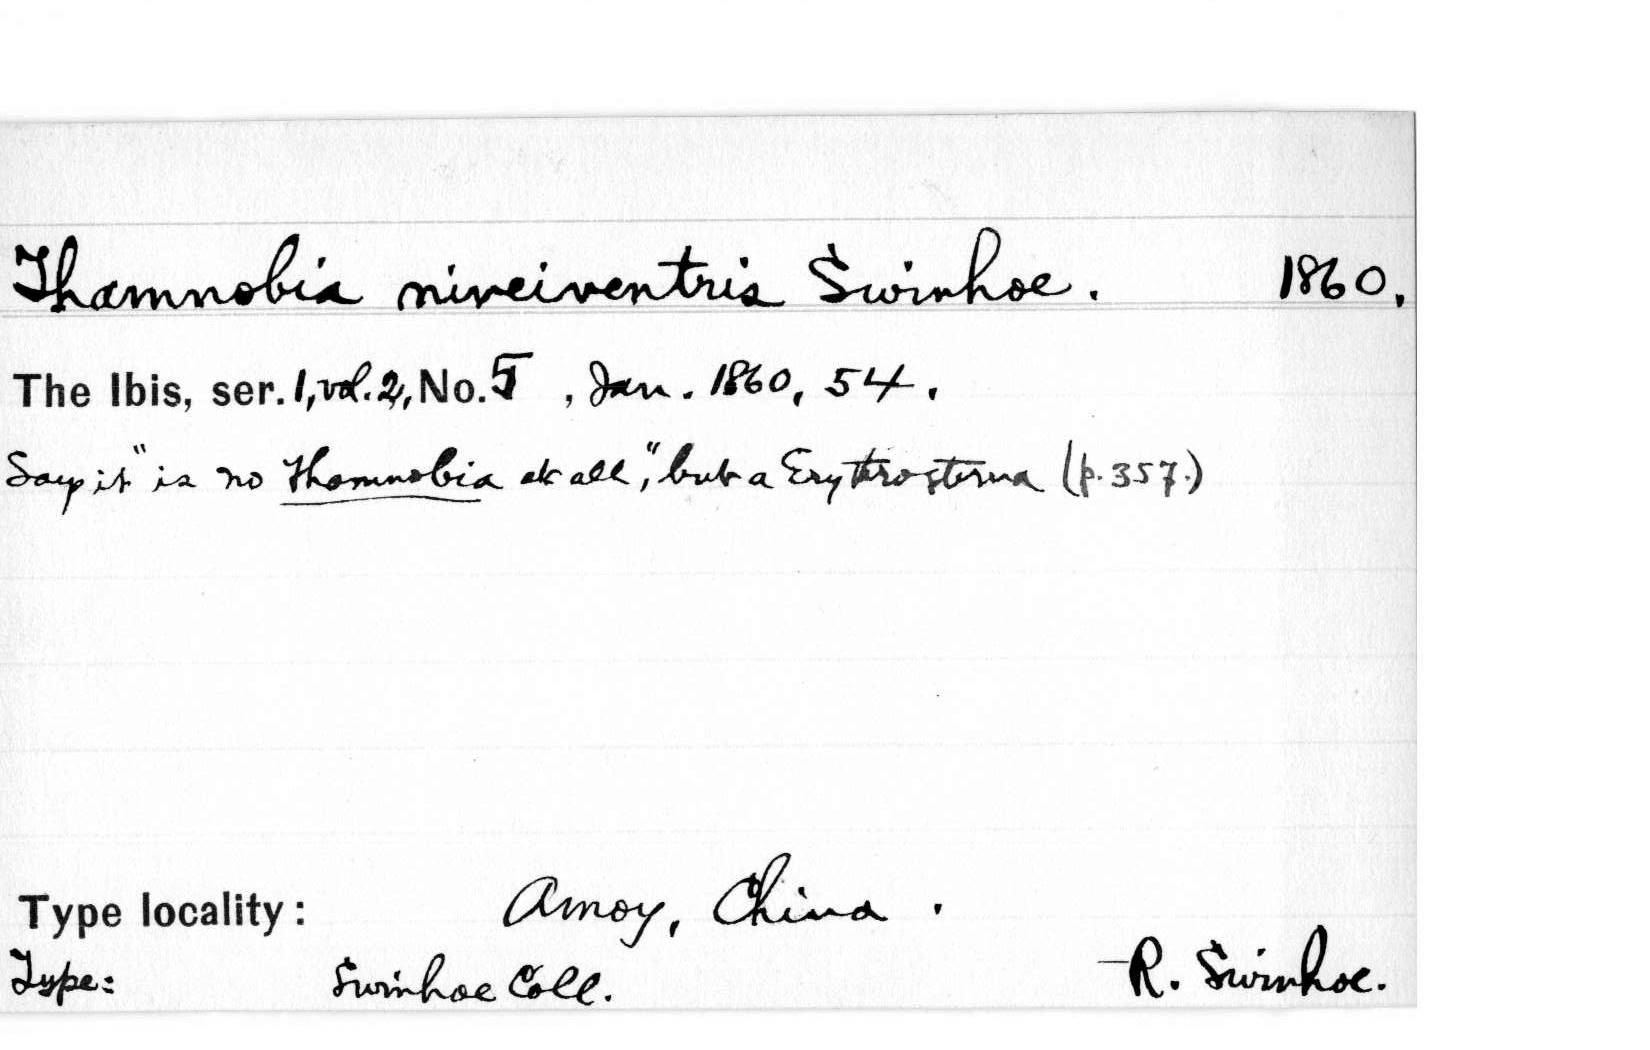 Thamnobia niveiventris Swinhoe. 1860.
The Ibis, ser. 1, vol. 2, No. 5, Jan. 1860, 54.
Says it "is no Thamnobia at all", but a Erythrosterna (p. 357.)
Type locality: Amoy, China.
Type: Swinhoe Coll. —R. Swinhoe.